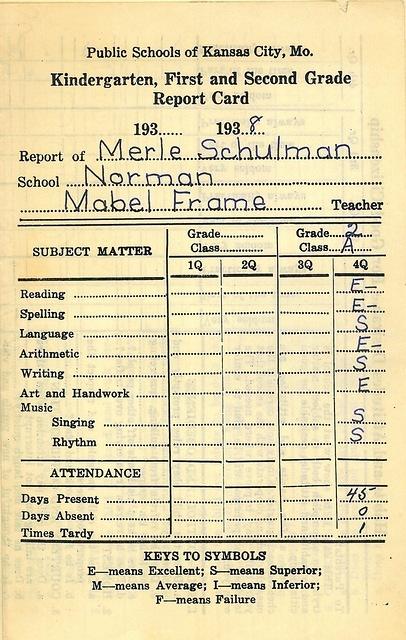 Public Schools of Kansas City, Mo.
Kindergarten, First and Second Grade
Report Card
193...... 1938
Report of Merle Schulman
School Norman
Mabel Frame Teacher
SUBJECT MATTER Grade............ Grade 2
Class............ Class A
1Q 2Q 3Q 4Q
Reading E-
Spelling E-
Language S
Arithmetic E-
Writing S
Art and Handwork E
Music
Singing S
Rhythm S
ATTENDANCE
Days Present 45
Days Absent 0
Times Tardy 1
KEYS TO SYMBOLS
E—means Excellent; S—means Superior;
M—means Average; I—means Inferior;
F—means Failure